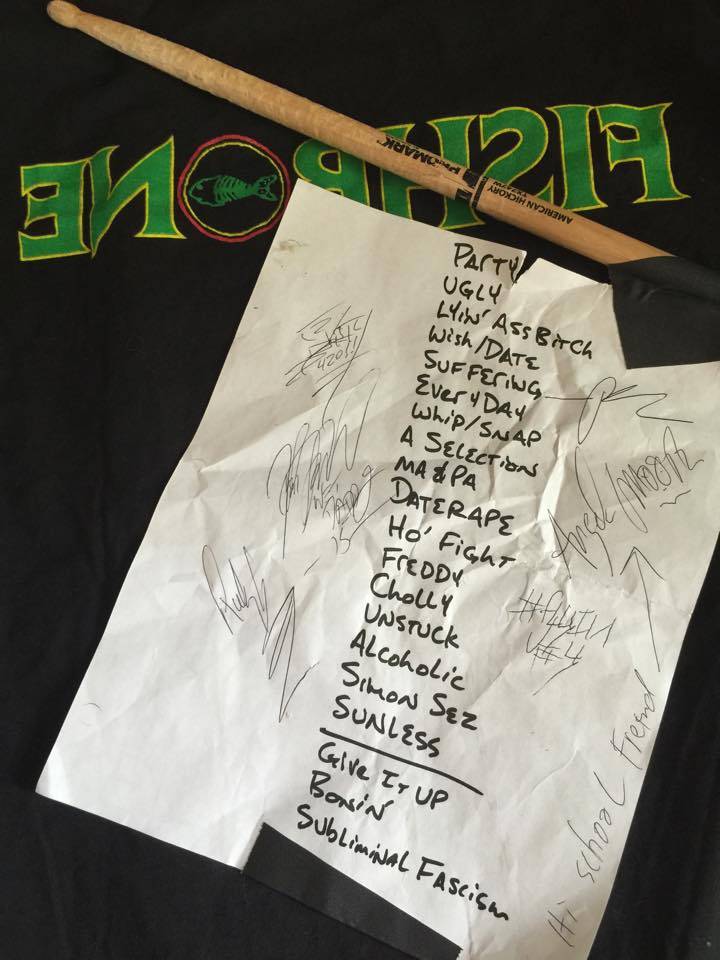 FISHBONE
PROMARK
AMERICAN HICKORY
PARTY
UGLY
LYIN' ASS BITCH
WISH/DATE
SUFFERING
EVERYDAY
WHIP/SNAP
A SELECTION
MA & PA
DATERAPE
HO' FIGHT
FREDDY
CHOLLY
UNSTUCK
ALCOHOLIC
SIMON SEZ
SUNLESS
GIVE IT UP
BONIN'
SUBLIMINAL FASCISM
Angelo
Hi school Friend